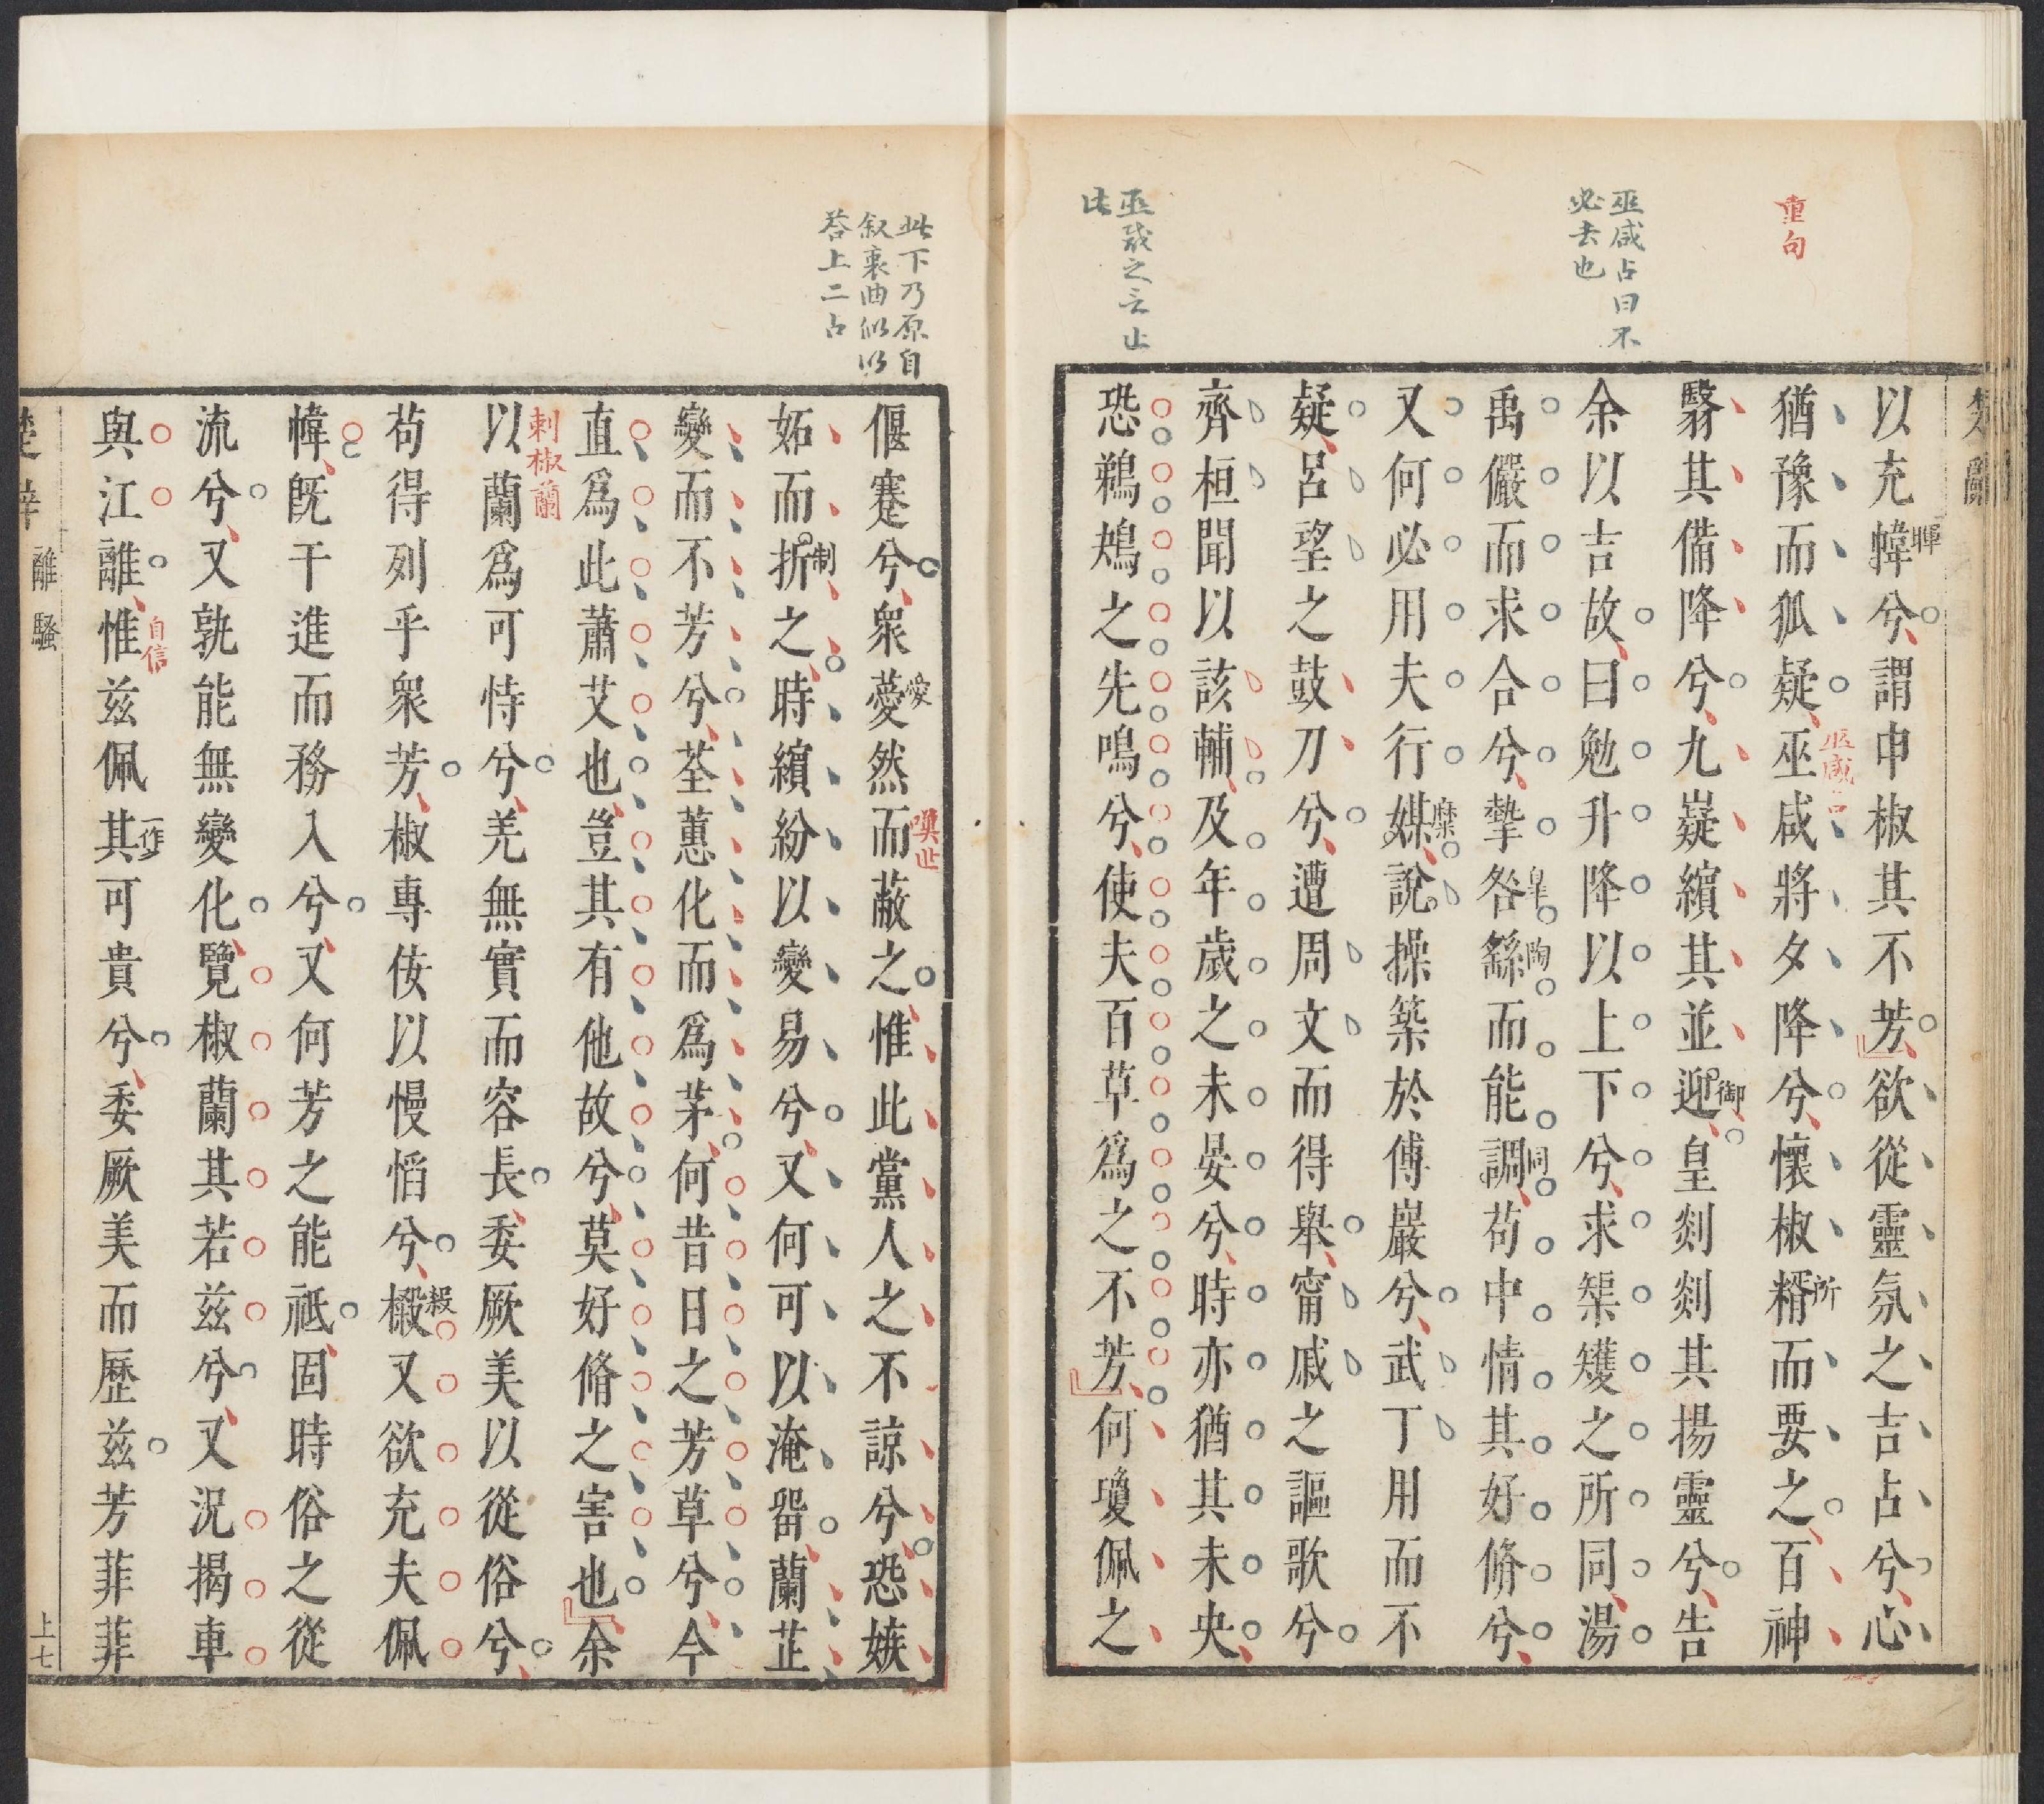 重句
巫咸占曰不
必去也
巫咸之言止
此
以充幃兮謂申椒其不芳欲從靈氛之吉占兮心
暉
猶豫而狐疑巫咸將夕降兮懷椒糈而要之百神
巫咸占
所
翳其備降兮九嶷繽其並迎皇剡剡其揚靈兮告
御
余以吉故曰勉升降以上下兮求榘矱之所同湯
禹儼而求合兮摯咎繇而能調苟中情其好脩兮
皐
陶
同
又何必用夫行媒說操築於傅巖兮武丁用而不
糜
疑呂望之鼓刀兮遭周文而得舉甯戚之謳歌兮
齊桓聞以該輔及年歲之未晏兮時亦猶其未央
恐鵜鴂之先鳴兮使夫百草爲之不芳何瓊佩之
此下乃原自
叙衷曲似以
荅上二占
偃蹇兮衆薆然而蔽之惟此黨人之不諒兮恐嫉
愛
嘆世
妬而折之時繽紛以變易兮又何可以淹留蘭芷
制
變而不芳兮荃蕙化而爲茅何昔日之芳草兮今
直爲此蕭艾也豈其有他故兮莫好脩之害也余
以蘭爲可恃兮羌無實而容長委厥美以從俗兮
刺椒蘭
苟得列乎衆芳椒專佞以慢慆兮樧又欲充夫佩
殺
幃旣干進而務入兮又何芳之能祗固時俗之從
流兮又孰能無變化覽椒蘭其若茲兮又況揭車
與江離惟茲佩其可貴兮委厥美而歷茲芳菲菲
自信
一作
離騷
上七